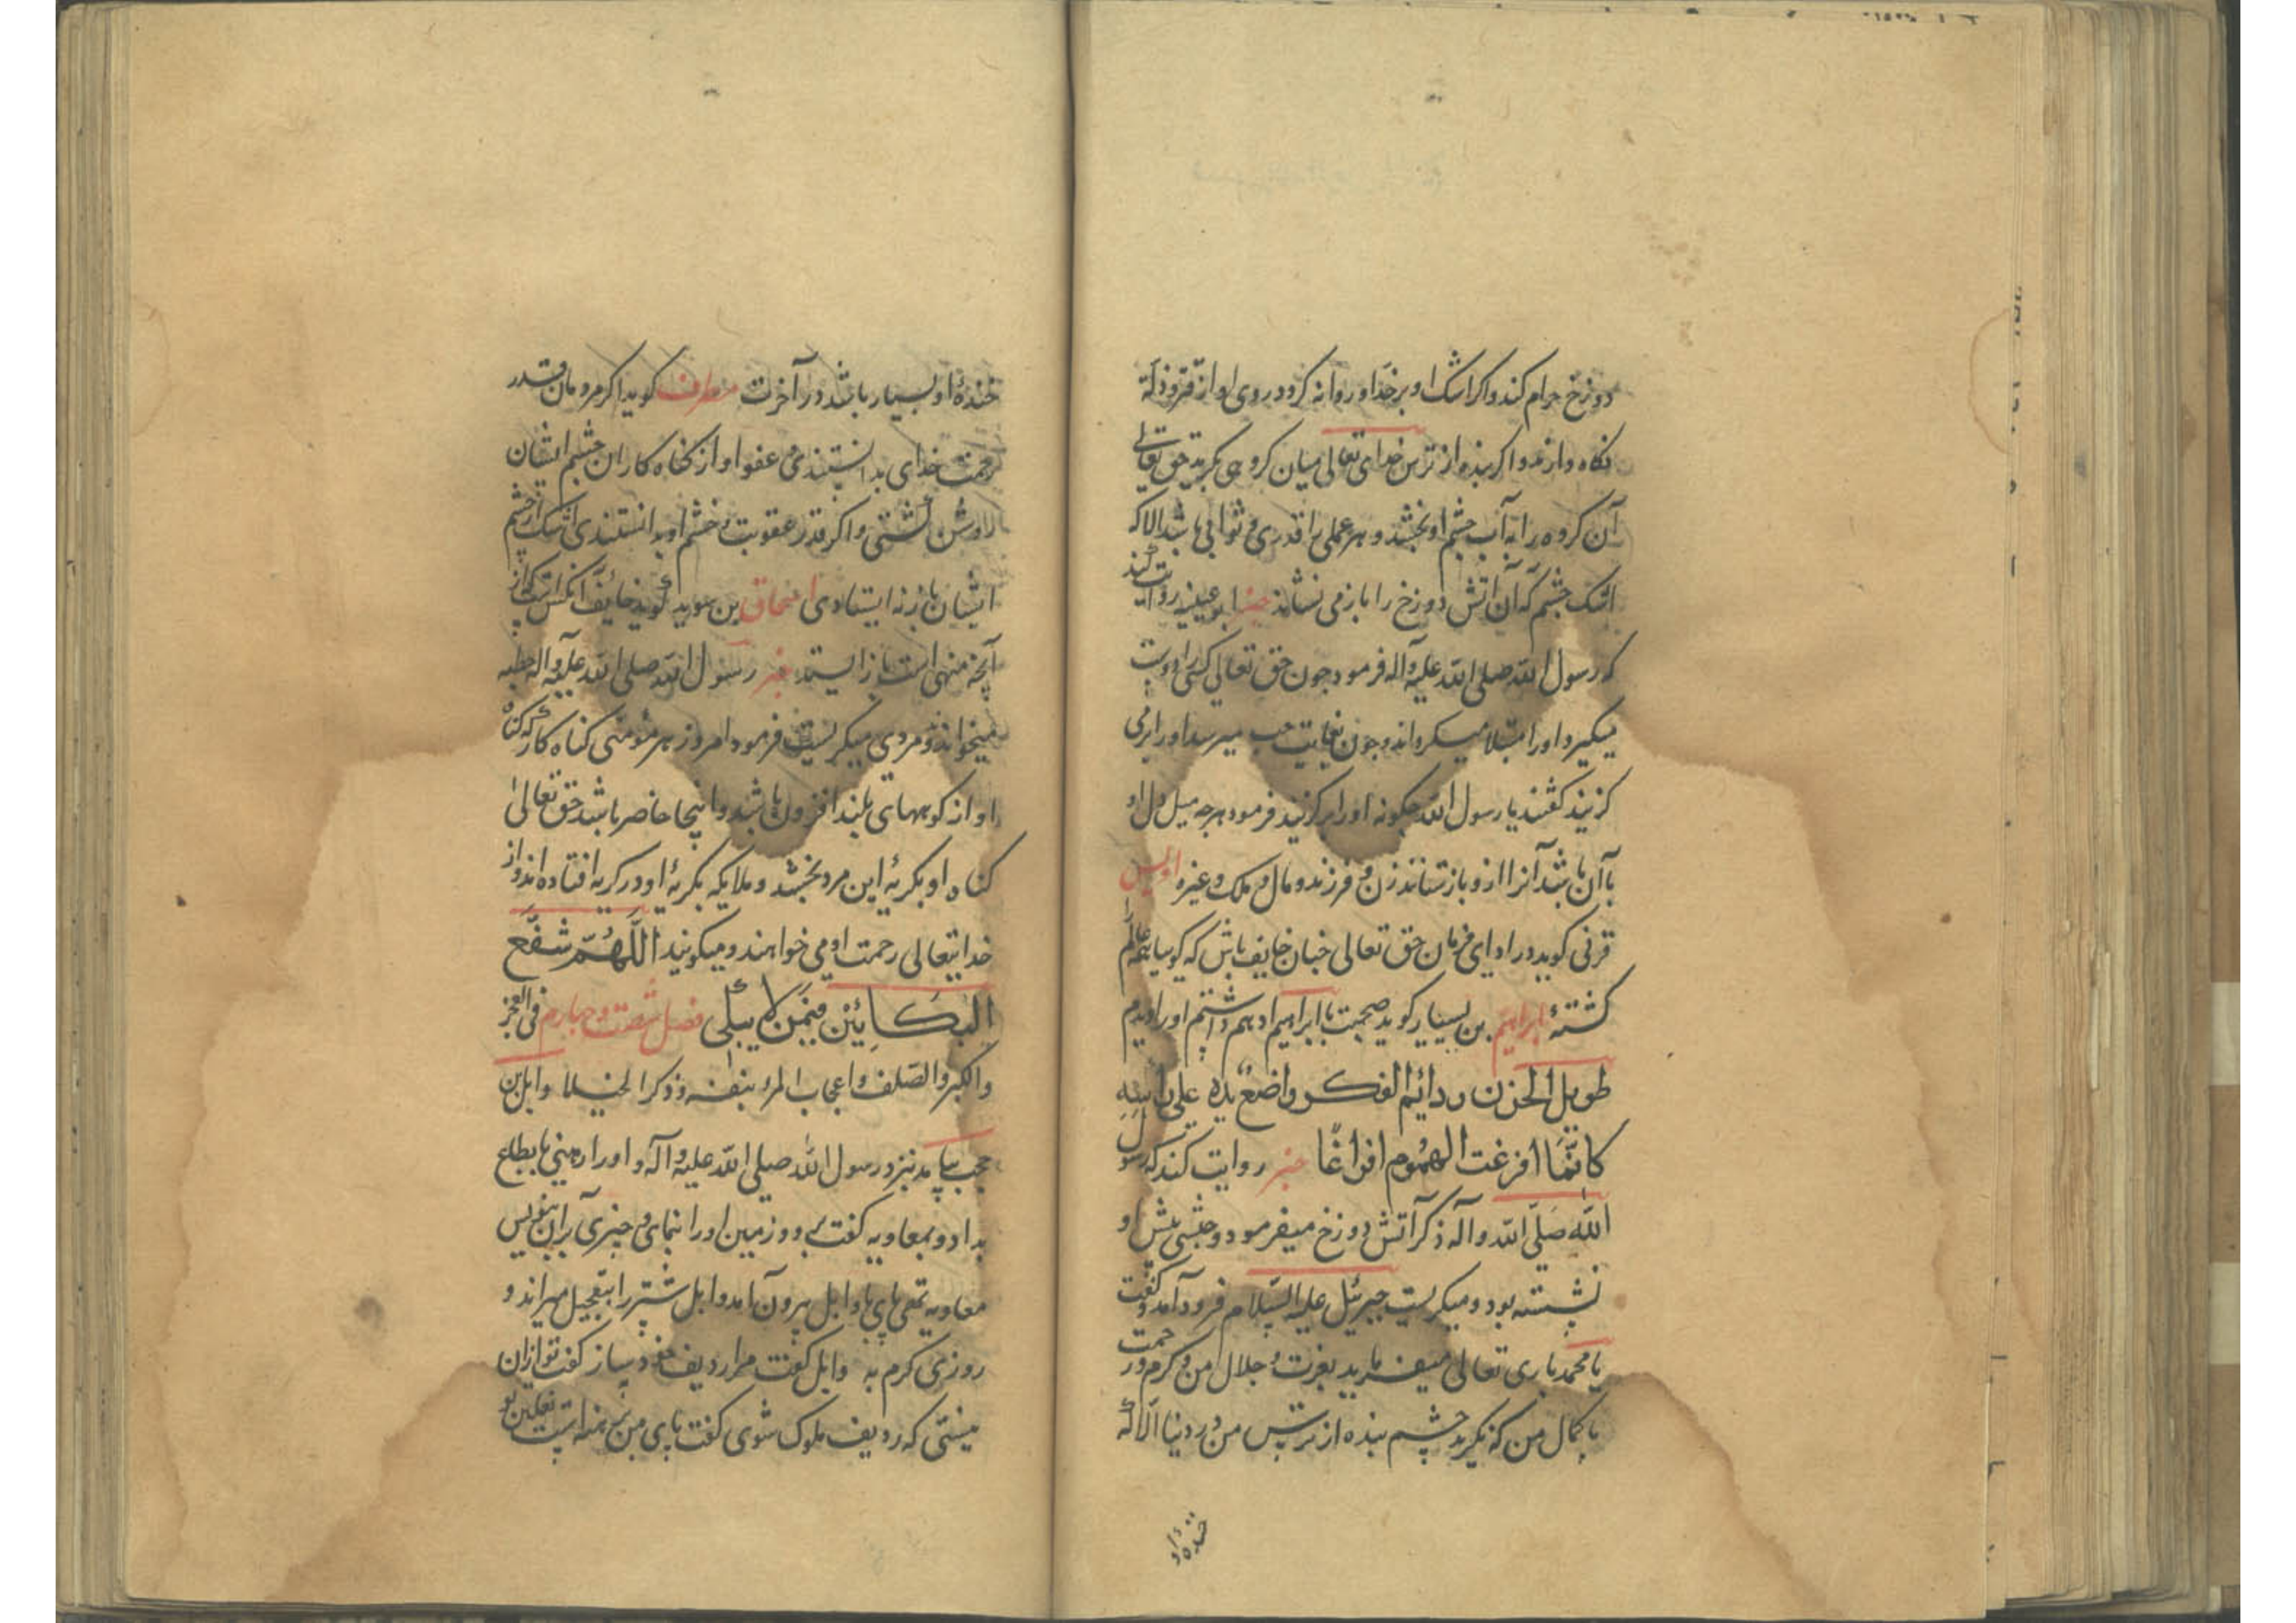 دوزخ حرام کند واکر اشک او بر خد او روانه کردد روی او از قتر و ذلة
نکاه دارند واکر بنده از ترس خدای تعالی میان کروهی بکرید حق تعالی
آن کروه را به آب چشم او بخشد و هر عملی را قدری و ثوابی باشد الا که
اشک چشم که آن آتش دوزخ را باز می نشاند خبر ابو عیینه روایت کند
که رسول الله صلی الله علیه وآله فرمود چون حق تعالی کسی را دوست
میکیرد او را مبتلا میکرداند و چون بغایت حب میرسد او را بر می
کزیند کفتند یا رسول الله چکونه او را بر کزیند فرمود هر چه میل دل او
با آن باشد آنرا ازو باز ستاند زن و فرزند و مال و ملک و غیره اویس
قرنی کوید در ادای فرمان حق تعالی خبان خایف باش که کویا همه عالم
کشتهٔ ابراهیم بن بسیار کوید صحبت با ابراهیم ادهم داشتم او را دیدم
طویل الحزن و دائم الفکر واضع یده علی راسه
کانما افرغت الهموم افراغا خبر روایت کند که رسول
الله صلی الله وآله ذکر آتش دوزخ میفرمود و حبشی پیش او
نشسته بود و میکریست جبرئیل علیه السلام فرود آمد و کفت
یا محمد باری تعالی میفرماید بعزت و جلال من و کرم و رحمت
با کمال من که نکرید چشم بنده از ترس من در دنیا الا که
خندهٔ او
خندهٔ او بسیار باشد در آخرت مطرف کوید اکر مردمان قدر
رحمت خدای بدانستندی و عفو او از کناه کاران چشم ایشان
روشن کشتی و اکر قدر عقوبت و خشم او بدانستندی اشک از چشم
ایشان باز نه ایستادی اسحاق بن سوید کوید خایف آنکس است که از
آنچه منهی است باز ایستد خبر رسول الله صلی الله علیه وآله خطبه
میخواند و مردی میکریست فرمود امروز هر مؤمنی کناه کار که کناه
او از کوههای بلند افزون باشد و اینجا حاضر باشد حق تعالی
کناه او بکریهٔ این مرد بخشد و ملایکه بکریهٔ او در کریه افتاده اند و از
خدایتعالی رحمت او می خواهند و میکویند اللهم شفع
البکائین فیمن لا یبکی فصل شصت و چهارم فی الفخر
والکبر والصلف و اعجاب المرء بنفسه و ذکر الخیلا وابل بن
حجب بیامد نزد رسول الله صلی الله علیه وآله و او را زمینی باقطاع
بداد و بمعاویه کفت برو و زمین او را بنمای و چیزی بر آن بنویس
معاویه تهی پای با وابل بیرون آمد و ابل شتر را بتعجیل میراند و
روزی کرم به وابل کفت مرا ردیف خود ساز کفت تو از آن
نیستی که ردیف ملوک شوی کفت پای من برهنه است نعلین تو